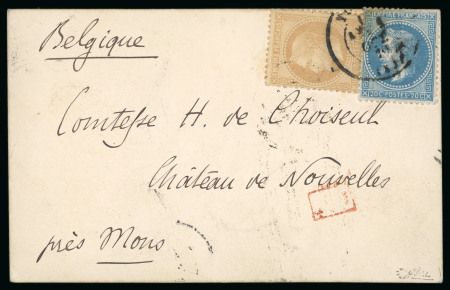 Belgique
Comtesse H. de Choiseul
Château de Nouvelles
près Mons